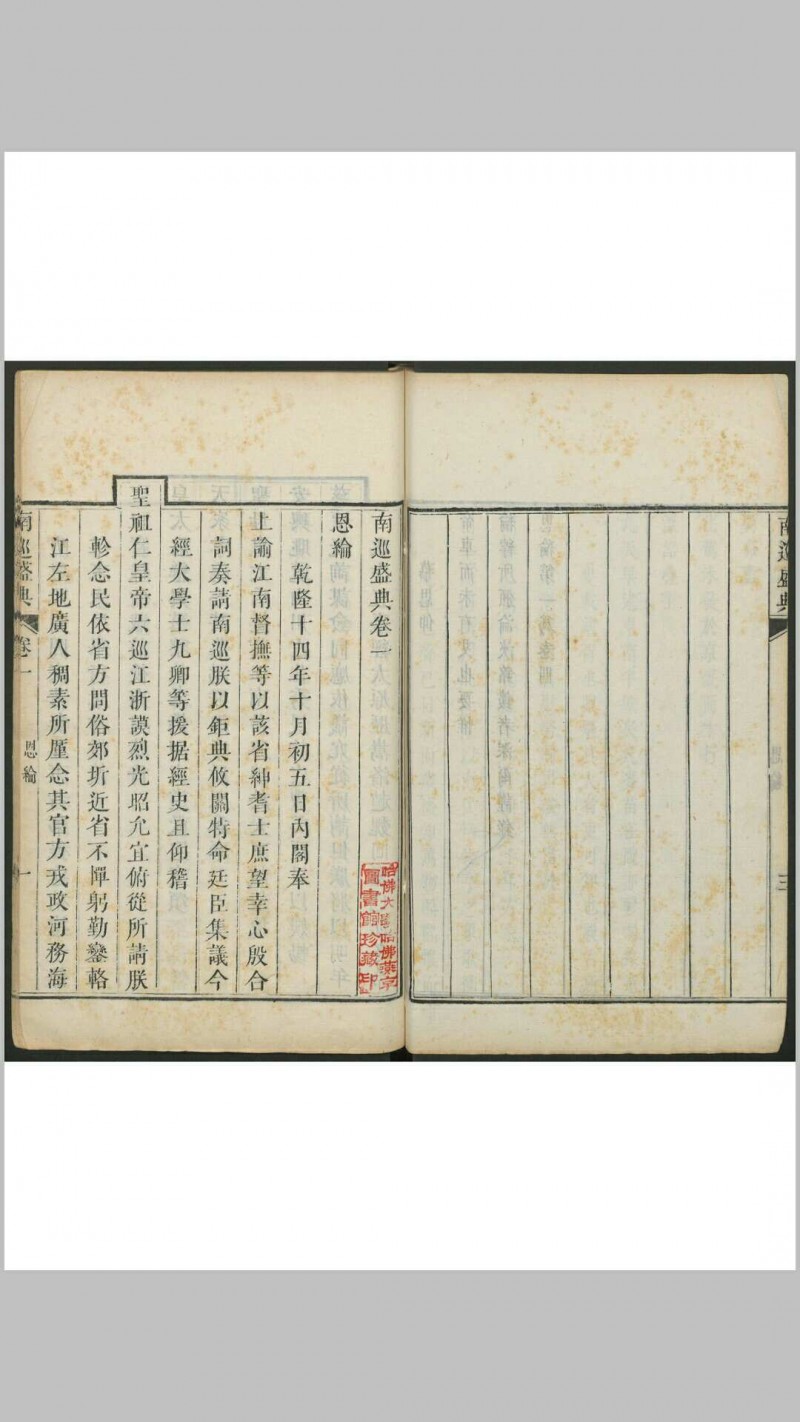 南巡盛典
三
南巡盛典卷一
恩綸
乾隆十四年十月初五日內閣奉
上諭江南督撫等以該省紳耆士庶望幸心殷合
詞奏請南巡朕以鉅典攸關特命廷臣集議今
經大學士九卿等援据經史且仰稽
聖祖仁皇帝六巡江浙謨烈光昭允宜俯從所請朕
軫念民依省方問俗郊圻近省不憚躬勤鑾輅
江左地廣人稠素所厪念其官方戎政河務海
南巡盛典 卷一 恩綸 一
哈佛大學哈佛燕京
圖書館珍藏印